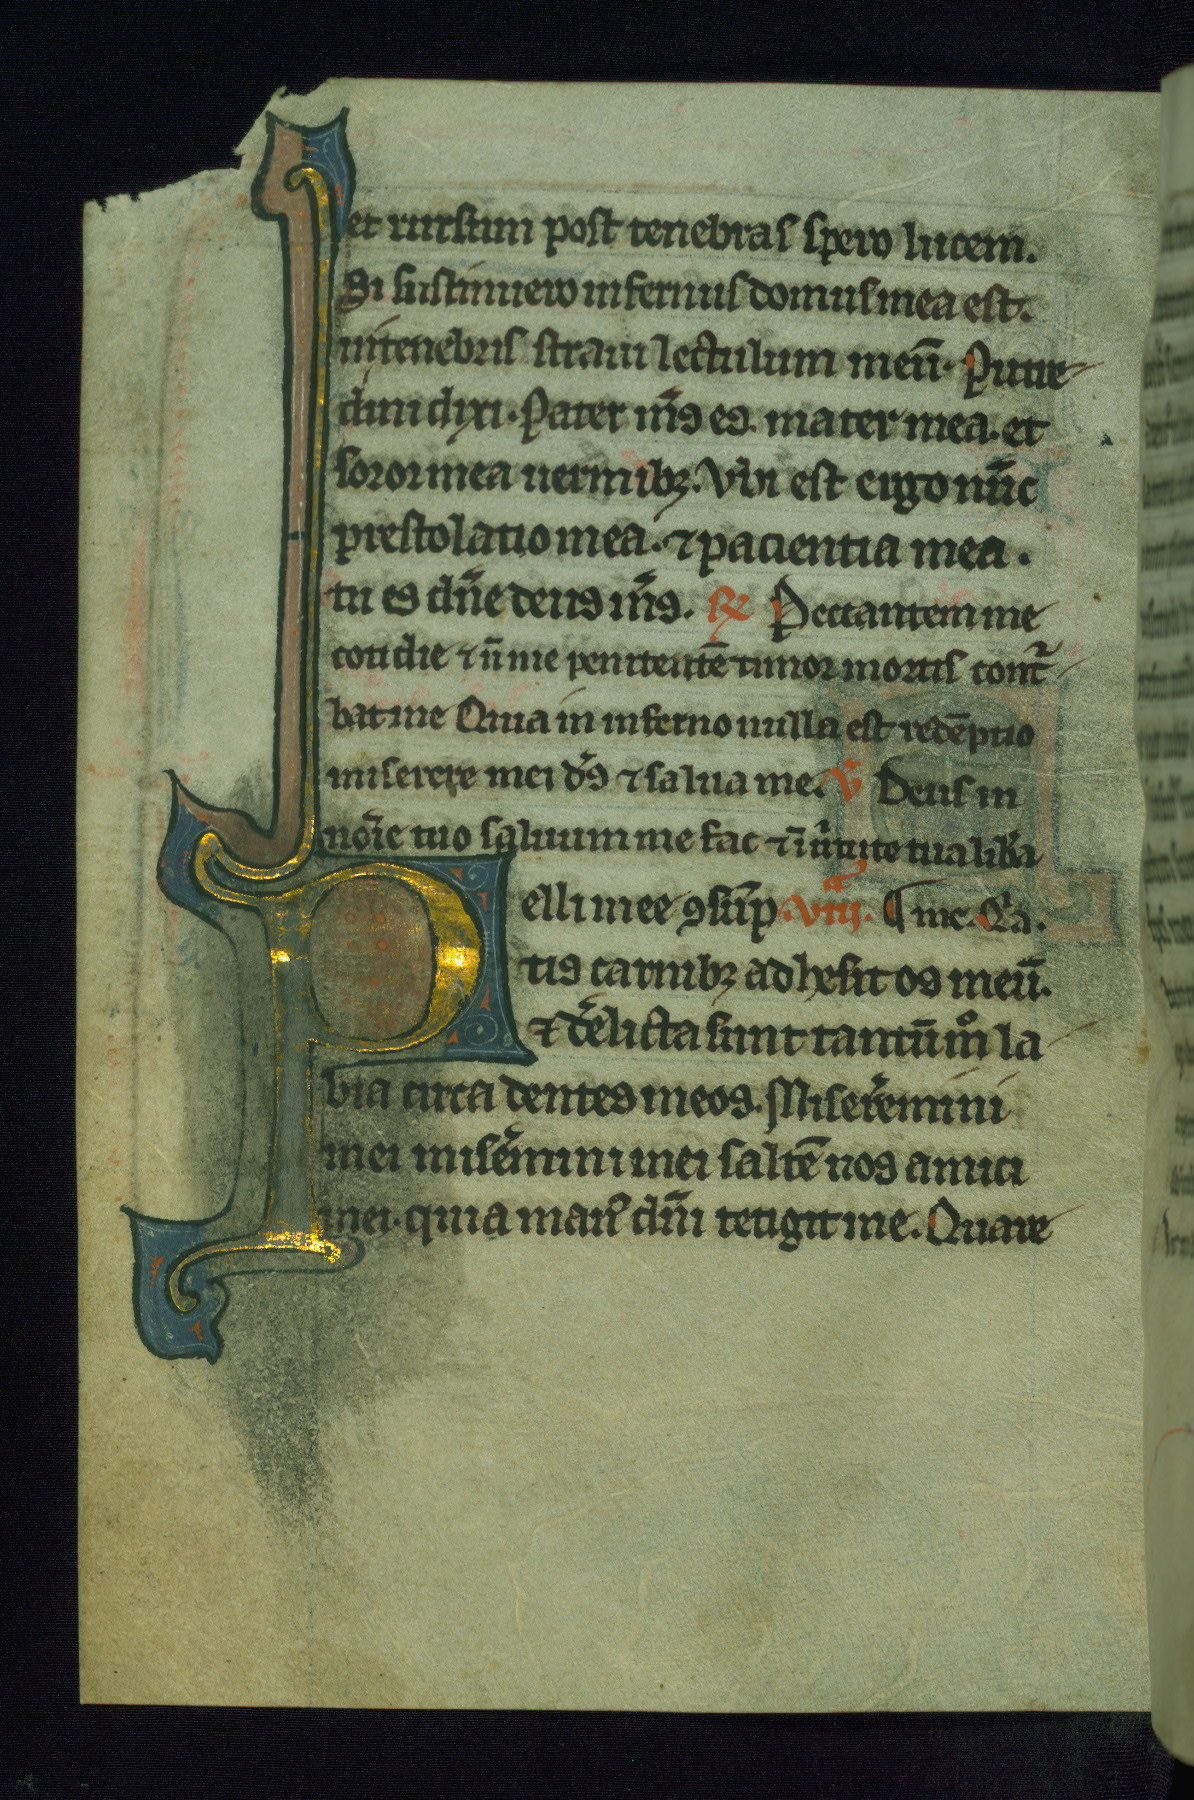 et rursum post tenebras spero lucem.
Si sustinuero infernus domus mea est.
in tenebris straui lectulum meū. Putre-
dini dixi. Pater m̄s es. mater mea. et
soror mea uermibꝫ. Vbi est ergo nūc
prestolatio mea. ⁊ paciencia mea.
tu es dn̄e deus m̄s. ℟ Peccantem me
cotidie ⁊ n̄ me penitentē timor mortis cont̄-
bat me Quia in inferno nulla est redēptio
miserere mei ds̄ ⁊ salua me. ℣ Deus in
noīe tuo saluum me fac ⁊ ī uirtute tua lib̄a
Pelli mee ꝯsūp. viij. ¶ me. Q̄a.
tis carnibꝫ adhesit os meū.
⁊ derelicta sunt tantūm̊ la-
bia circa dentes meos. Miseremini
mei miseremini mei saltē uos amici
mei. quia manꝰ dn̄i tetigit me. Quare